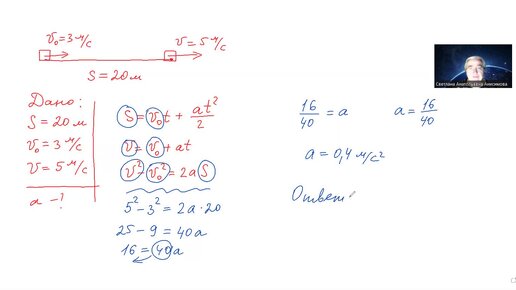 v₀=3 м/с
v=5 м/с
S=20 м
Дано:
S=20 м
v₀=3 м/с
v=5 м/с
a -?
S=v₀t + at²/2
v=v₀+at
v²-v₀²=2aS
5²-3²=2a·20
25-9=40a
16=40a
16/40=a
a=16/40
a=0,4 м/с²
Ответ:
Светлана Анатольевна Анисимова